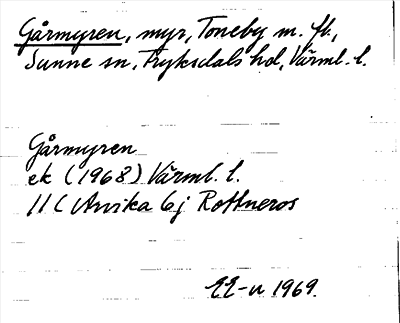 Gårmyren, myr, Toneby m. fl.,
Sunne sn, Fryksdals hd, Värml. l.
Gårmyren
ek (1968) Värml. l.
11 C Arvika 6j Rottneros
EE-n 1969.